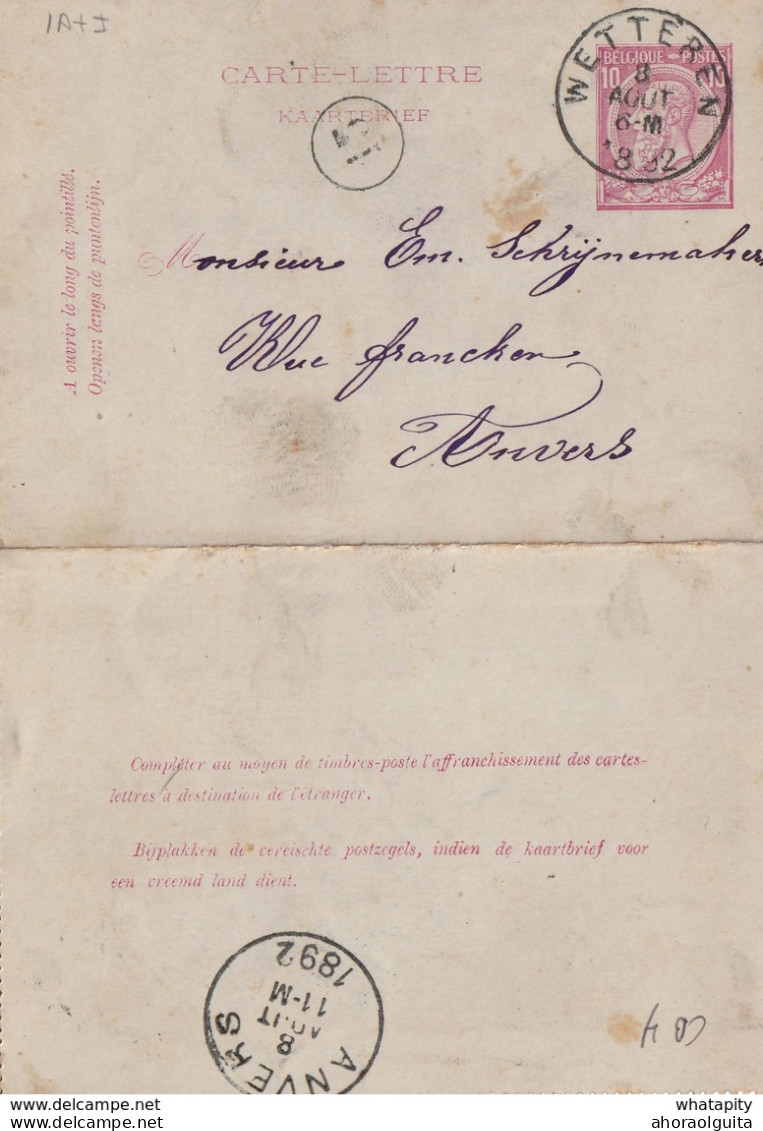 IA+I
CARTE-LETTRE
KAARTBRIEF
WETTEREN
8
AOUT
6-M
1892
BELGIQUE POSTE
10
A ouvrir le long du pointillé.
Openen langs de puntenlijn.
Monsieur Em. Schrijnemakers
Rue francken
Anvers
Compléter au moyen de timbres-poste l'affranchissement des cartes-
lettres à destination de l'étranger.
Bijplakken de vereischte postzegels, indien de kaartbrief voor
een vreemd land dient.
ANVERS
8
AOUT
11-M
1892
delcampe.net
whatapity
ahoraolguita